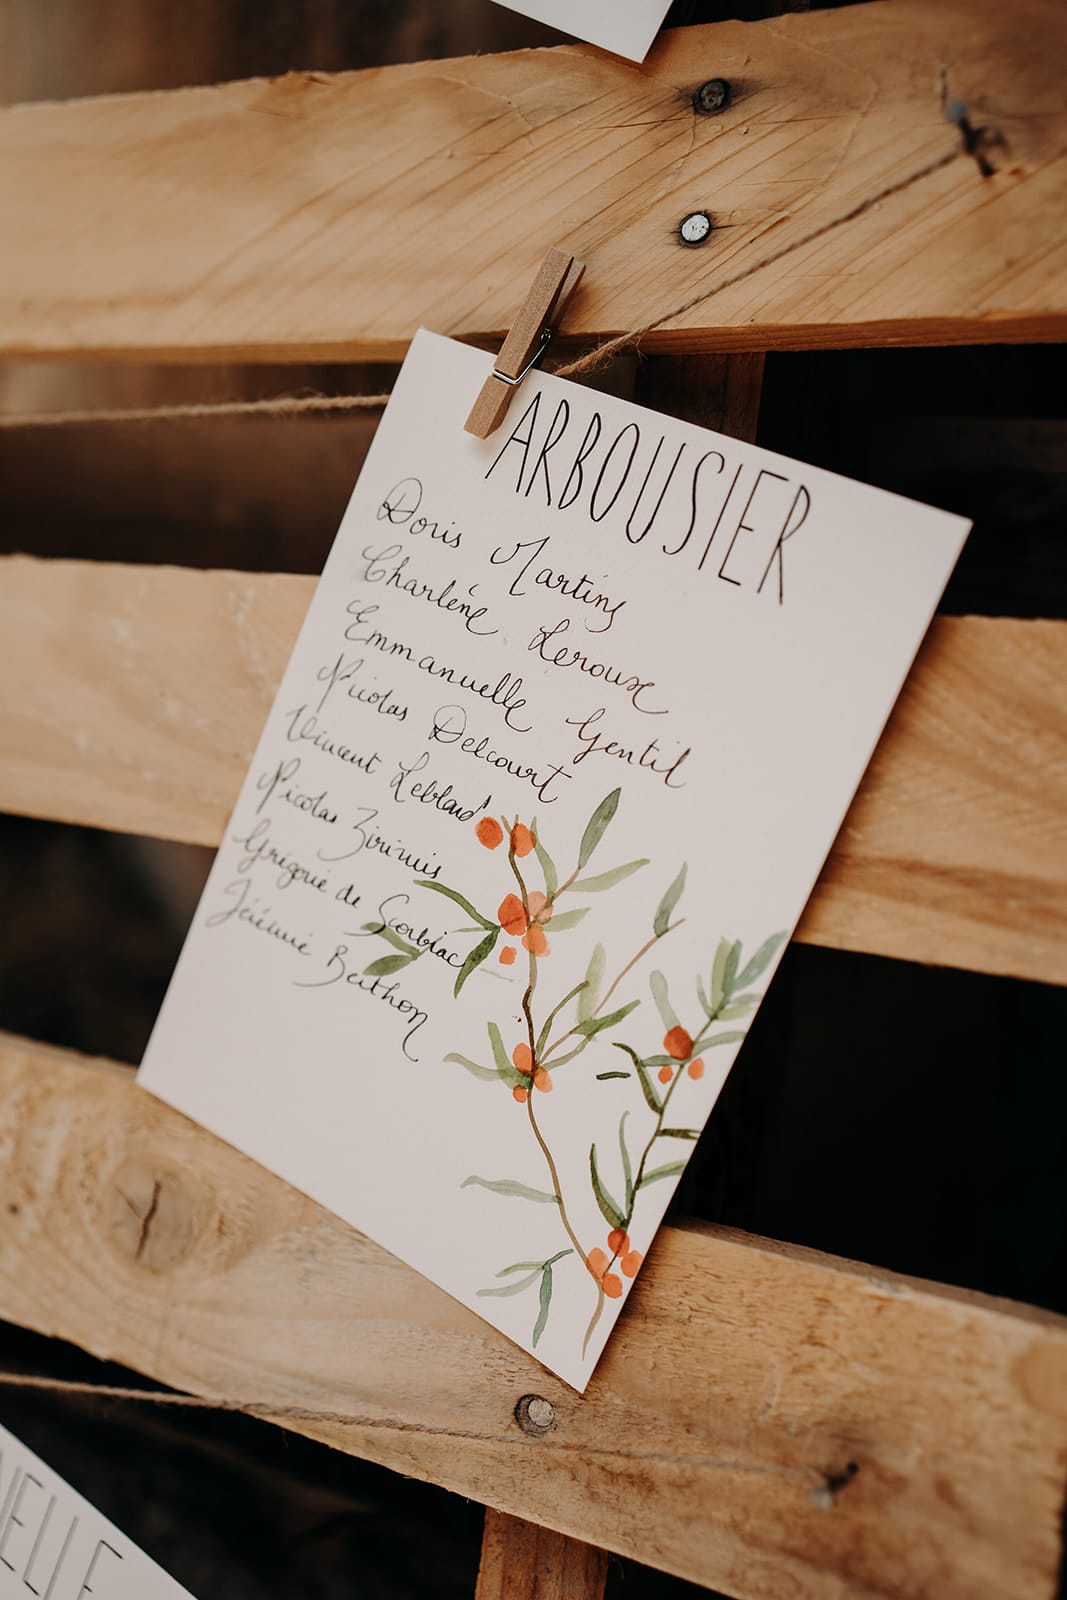 ARBOUSIER
Doris Martins
Charlène Leroux
Emmanuelle Gentil
Nicolas Delcourt
Vincent Leblaud
Nicolas Zirimis
Grégorie de Scorbiac
Jérémie Berthon
NELLE